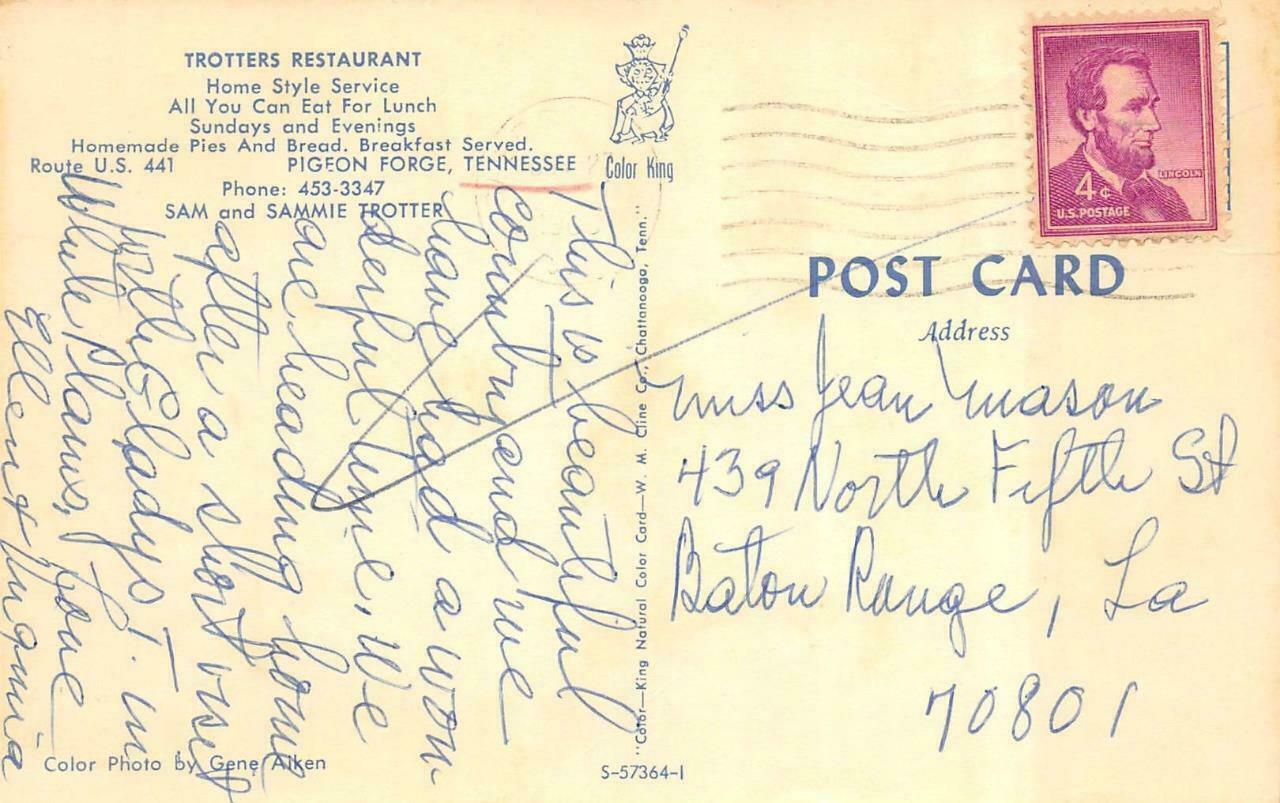 TROTTERS RESTAURANT
Home Style Service
All You Can Eat For Lunch
Sundays and Evenings
Homemade Pies And Bread. Breakfast Served.
Route U.S. 441 PIGEON FORGE, TENNESSEE
Phone: 453-3347
SAM and SAMMIE TROTTER
This is beautiful
country and we
have had a won
derful time. We
are heading home
after a short visit
with Gladys T. in
White Plains, Love
Ellen &
Color Photo by Gene Aiken
Color King
"Color—King Natural Color Card—W. M. Cline Co., Chattanooga, Tenn."
S-57364-1
LINCOLN
4¢
U.S. POSTAGE
POST CARD
Address
Miss Jean Mason
439 North Fifth St
Baton Rouge, La
70801